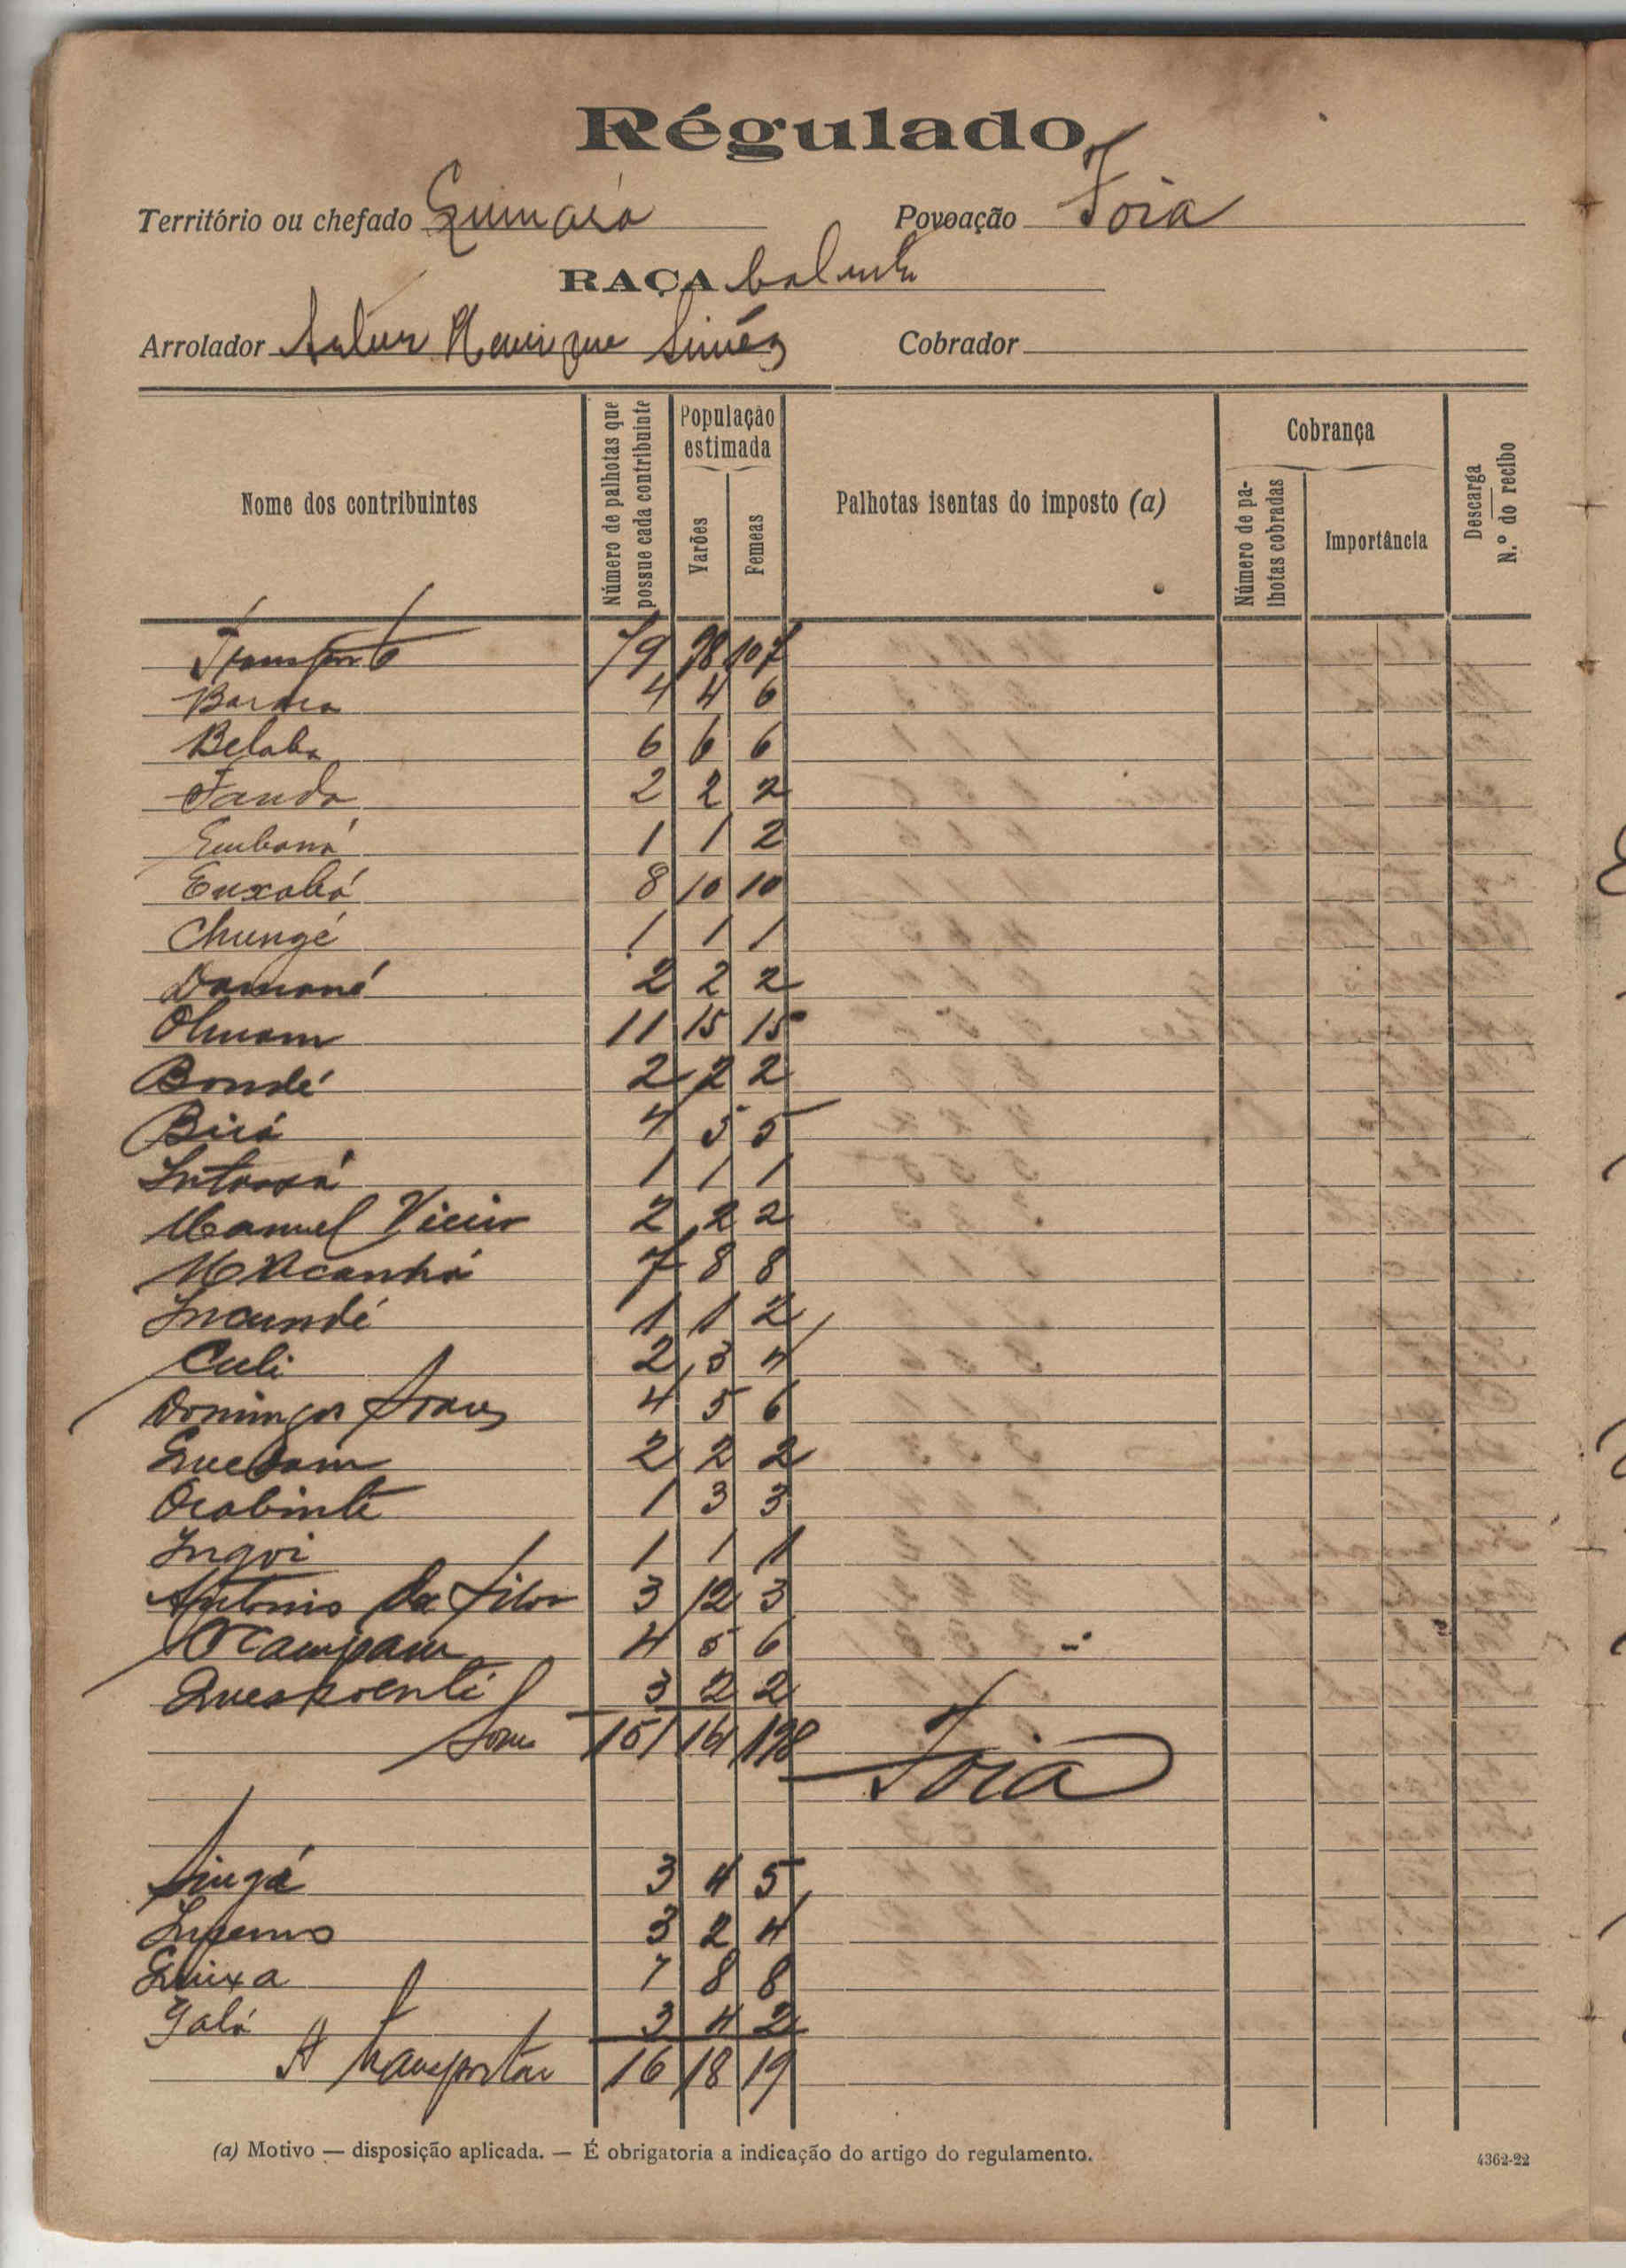 Régulado
Território ou chefado Povoação Foia
RAÇA balanta
Arrolador Artur Henrique Cobrador
Nome dos contribuintes
Número de palhotas que possue cada contribuinte
População estimada
Varões
Femeas
Palhotas isentas do imposto (a)
Cobrança
Número de palhotas cobradas
Importância
Descarga
N.º do recibo
Transporte 79 98 107
4 4 6
Belaba 6 6 6
2 2 2
Embaná 1 1 2
Enxabá 8 10 10
Chungé 1 1 1
Damané 2 2 2
11 15 15
Bondé 2 2 2
Birá 4 5 5
1 1 1
Manuel Vieir 2 2 2
7 8 8
Incundé 1 1 2
Culi 2 3 4
Domingos Soares 4 5 6
2 2 2
Ocobinte 1 3 3
Ingoi 1 1 1
Antonio da Silva 3 12 3
Ocampam 4 5 6
3 2 2
Soma 151 198
Foia
Singá 3 4 5
3 2 4
Quixa 7 8 8
Galá 3 4 2
A transportar 16 18 19
(a) Motivo — disposição aplicada. — É obrigatoria a indicação do artigo do regulamento.
4362-22